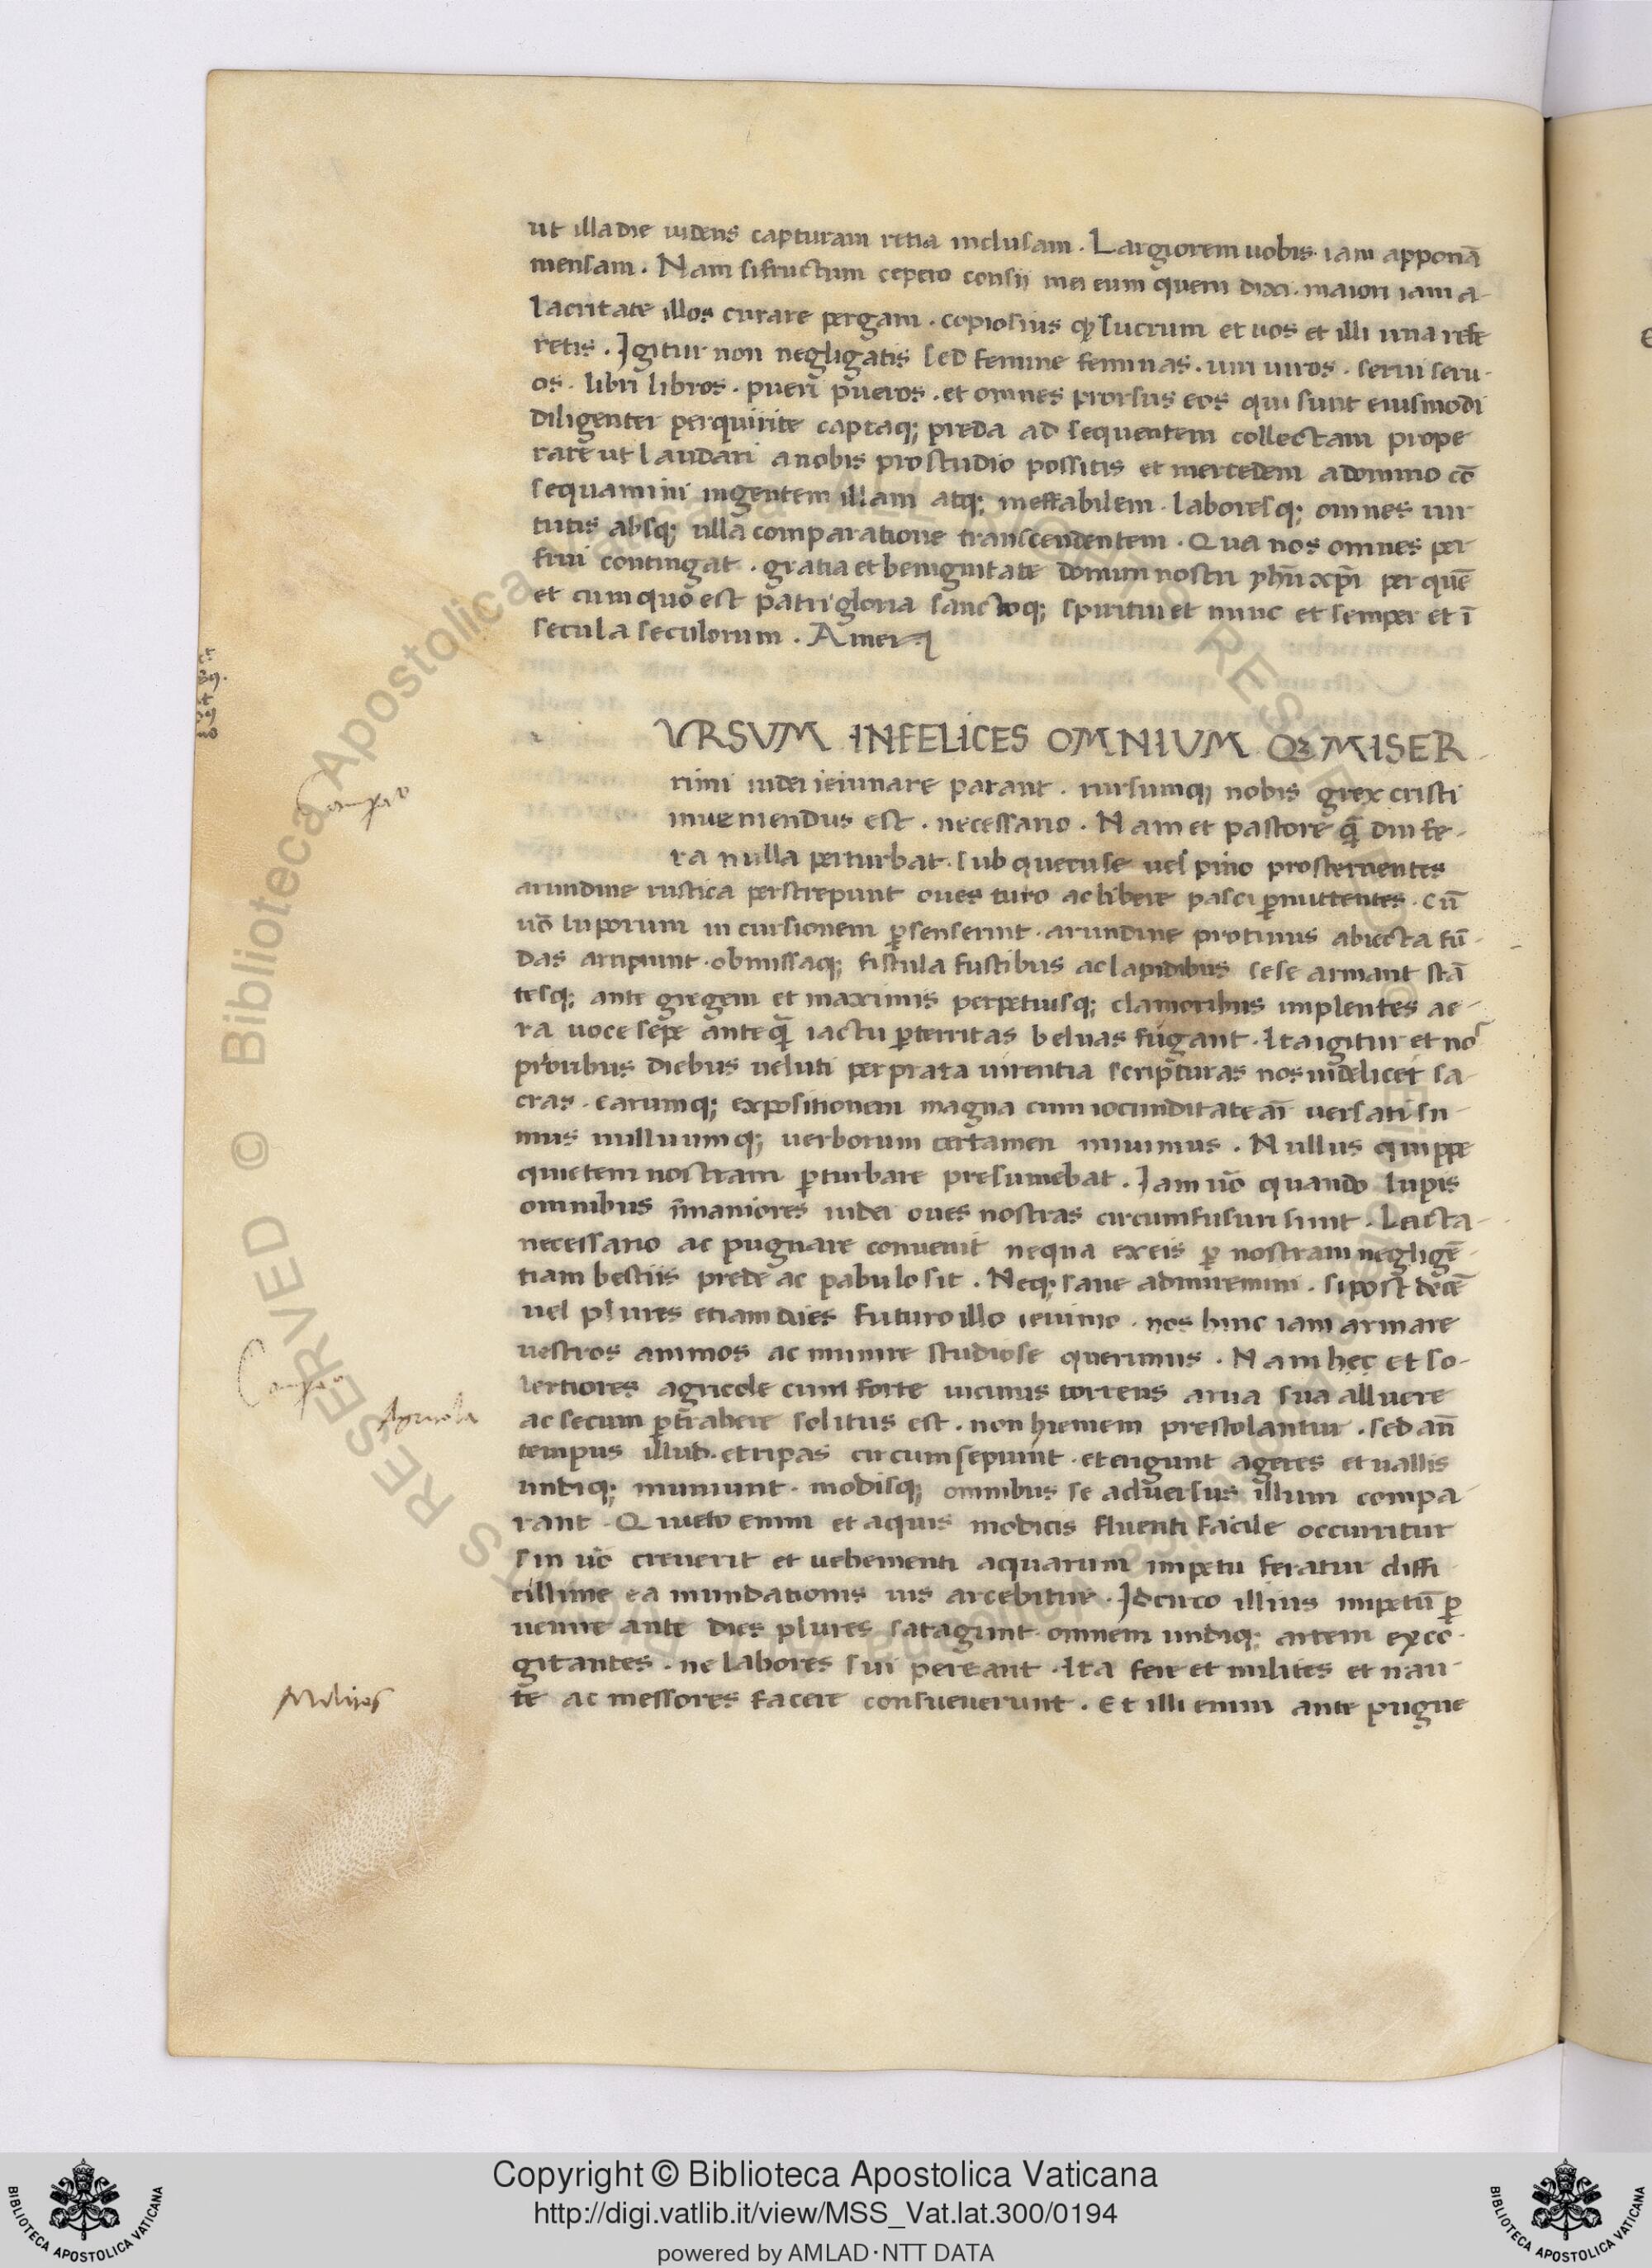 ut illa die uidens capturam retia inclusam. Largiorem uobis iam apponā
mensam. Nam si fructum cepero consilii mei eum quem dixi. maiori iam a-
lacritate illos curare pergam. copiosius qȝ lucrum et uos et illi una refe
retis. Igitur non negligatis sed femine feminas. uiri uiros. serui seru-
os. libri libros. pueri pueros. et omnes prorsus eos qui sunt eiusmodi
diligenter perquirite captaqȝ preda ad sequentem collectam prope
rate ut laudari a nobis pro studio possitis et mercedem a domino cō
sequamini ingentem illam atqȝ ineffabilem. laboresqȝ omnes uir
tutis absqȝ ulla comparatione transcendentem. Qua nos omnes per
frui contingat. gratia et benignitate domini nostri yhū xpī per quē
et cum quo est patri gloria sanctoqȝ spiritui et nunc et semper et ī
secula seculorum. Amen
VRSVM INFELICES OMNIVM Qȝ MISER
rimi iudei ieiunare parant. rursumqȝ nobis grex cristi
muniendus est. necessario. Nam et pastore q̄ diu fe-
ra nulla perturbat. sub quercu se uel pino prosternentes
arundine rustica perstrepunt oues turo ac libere pasci pmittentes. cū
uō luporum incursionem psenserint. arundine protinus abiecta fū
das arripiunt. obmissaqȝ fistula fustibus ac lapidibus sese armant stā
tesqȝ ante gregem et maximis perpetuisqȝ clamoribus implentes ae-
ra uoce sepe anteq̄ iactu pterritas beluas fugant. Ita igitur et nos
prioribus diebus ueluti per prata uirentia scripturas nos uidelicet sa-
cras. earumqȝ expositionem magna cum iocunditate āi uersati su-
mus nulluumqȝ uerborum certamen iniuimus. Nullus quippe
quietem nostram pturbare presumebat. Iam uō quando lupis
omnibus īmaniores iudei oues nostras circumfusuri sunt. Lucta-
necessario ac pugnare conuenit nequa ex eis p nostram negligē-
tiam bestiis prede ac pabulo sit. Neqȝ sane admiremini. si post decē
uel plures etiam dies futuro illo ieiunio. nos hinc iam armare
uestros animos ac munire studiose querimus. Nam hec et so-
lertiores agricole cum forte uicinus torrens arua sua alluere
ac secum ptrahere solitus est. non hiemem prestolantur. sed an̄
tempus illud. et ripas circumsepiunt. et erigunt ageres et uallis
undiqȝ muniunt. modisqȝ omnibus se aduersus illum compa-
rant. Quieto enim et aquis modicis fluenti facile occurritur
sin uō creuerit et uehementi aquarum impetu feratur diffi-
cillime ea inundationis uis arcebitur. Idcirco illius impetū p
uenire ante dies plures satagunt omnem undiqȝ artem exco-
gitantes. ne labores sui pereant. Ita fere et milites et nau-
te ac messores facere consueuerunt. Et illi enim ante pugne
Agricola
Milites
Copyright © Biblioteca Apostolica Vaticana
http://digi.vatlib.it/view/MSS_Vat.lat.300/0194
powered by AMLAD·NTT DATA
BIBLIOTECA APOSTOLICA VATICANA
BIBLIOTECA APOSTOLICA VATICANA